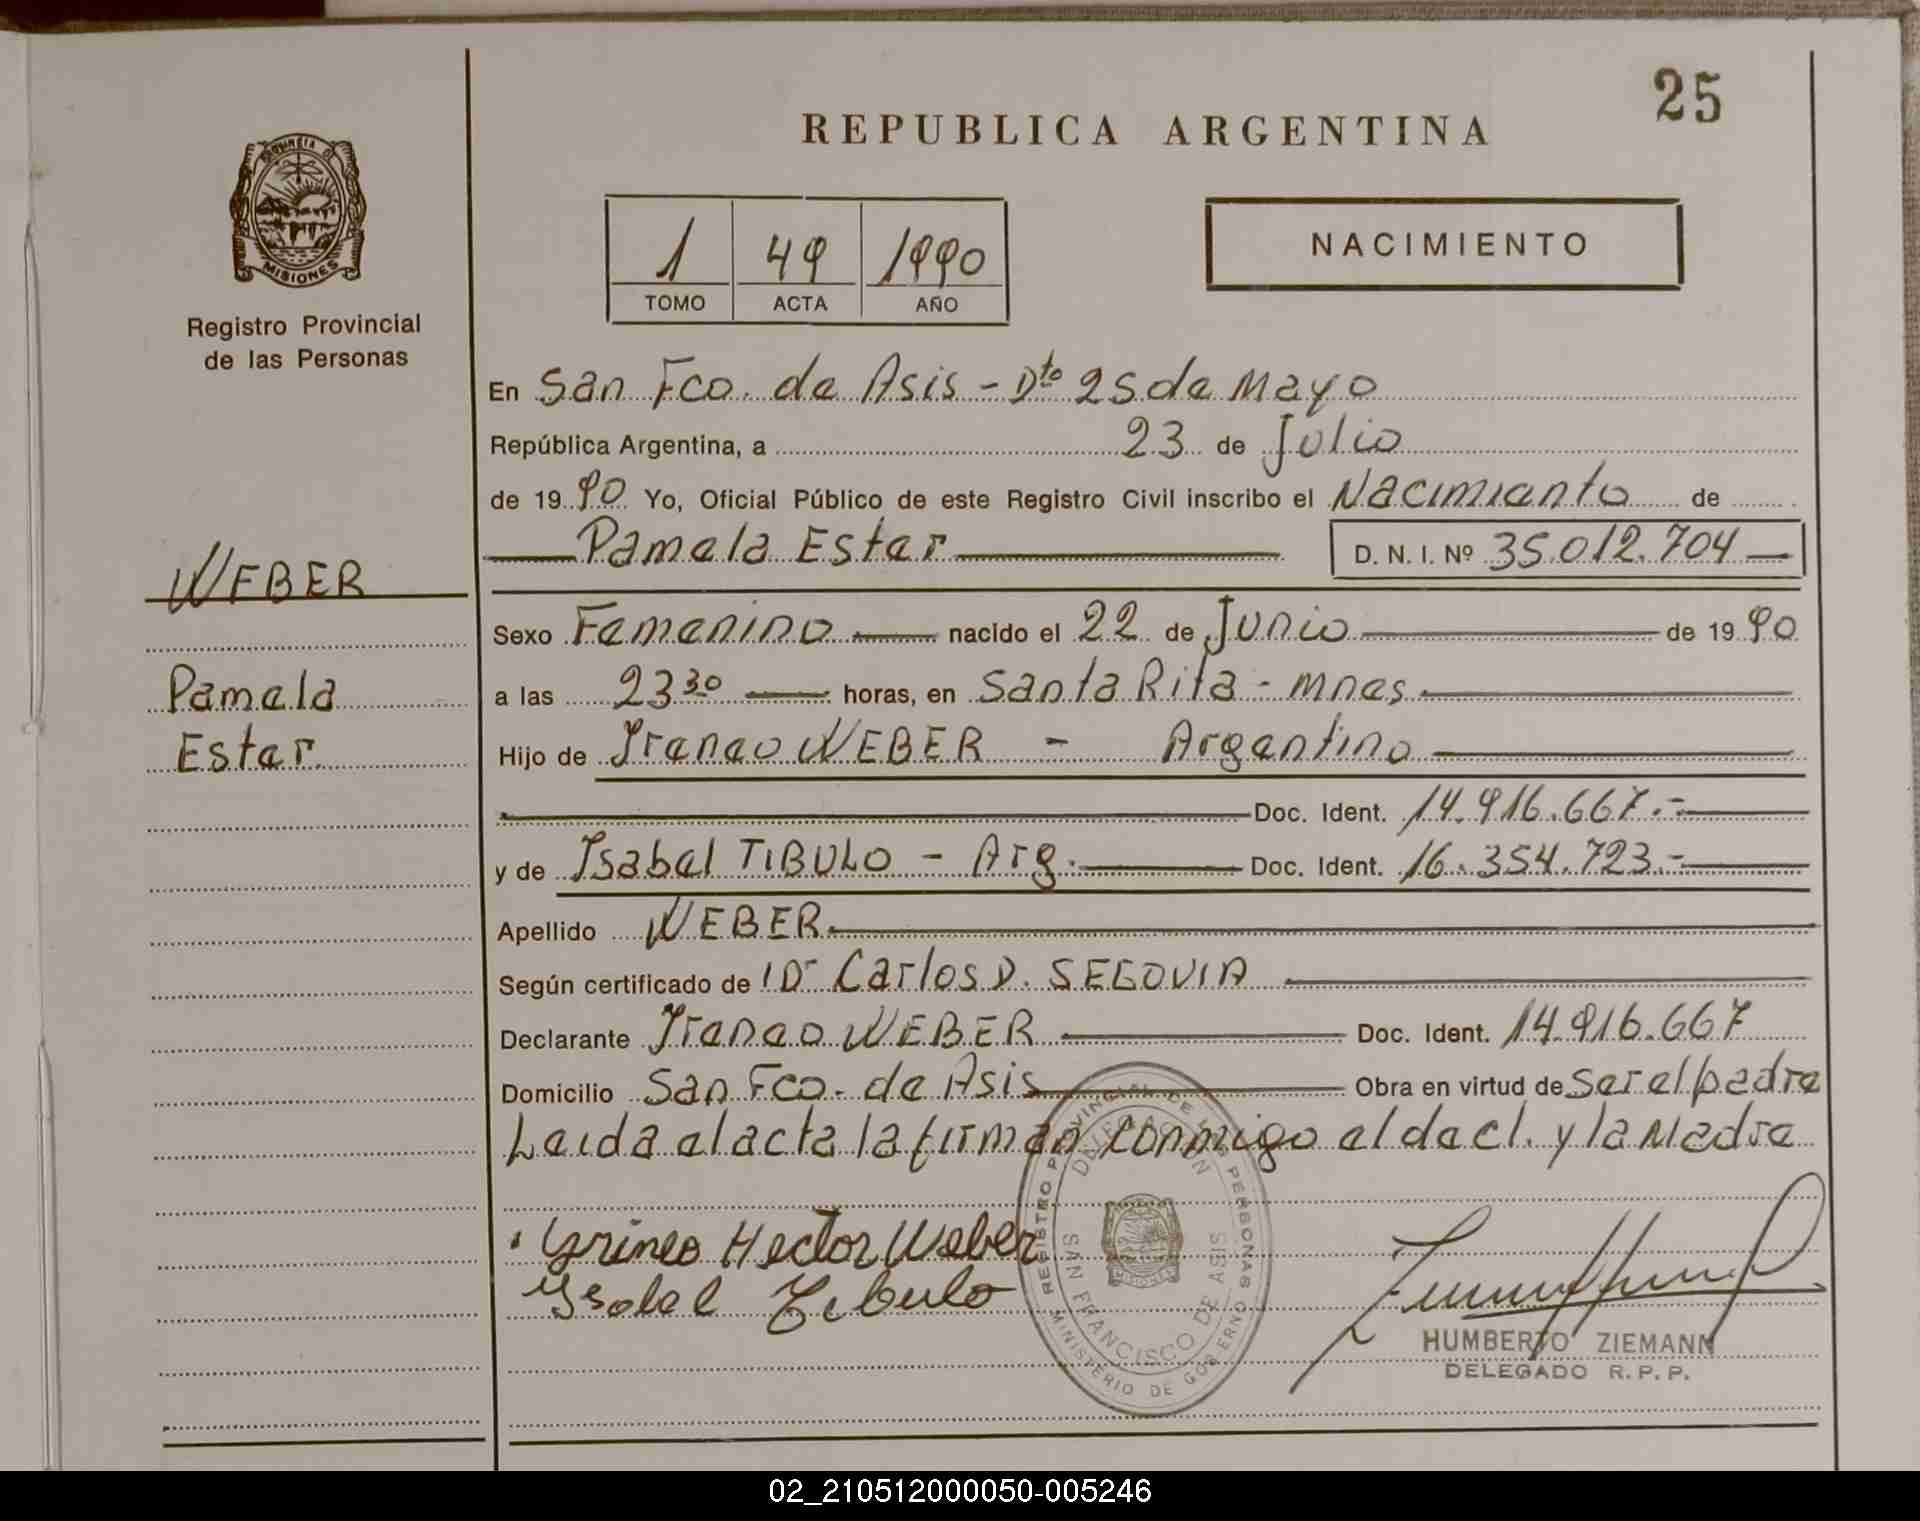 25
REPUBLICA ARGENTINA
PROVINCIA D
MISIONES
Registro Provincial
de las Personas
1 49 1990
TOMO ACTA AÑO
NACIMIENTO
En San Fco. de Asis - Dto 25 de Mayo
República Argentina, a 23 de Julio
de 1990 Yo, Oficial Público de este Registro Civil inscribo el Nacimiento de
Pamela Ester D. N. I. Nº 35.012.704
WEBER
Pamela
Ester
Sexo Femenino nacido el 22 de Junio de 1990
a las 23 30 horas, en Santa Rita - Mnes
Hijo de Ireneo WEBER - Argentino
Doc. Ident. 14.916.667.-
y de Isabel TIBULO - Arg. Doc. Ident. 16.354.723.-
Apellido WEBER
Según certificado de Dr Carlos D. SEGOVIA
Declarante Ireneo WEBER Doc. Ident. 14.916.667
Domicilio San Fco. de Asis Obra en virtud de ser el padre
Leida el acta la firman conmigo el decl. y la Madre
Yrineo Hector Weber
Ysabel Tibulo
REGISTRO PROVINCIAL DE LAS PERSONAS
DELEGACION
SAN FRANCISCO DE ASIS
MINISTERIO DE GOBIERNO
HUMBERTO ZIEMANN
DELEGADO R. P. P.
02_210512000050-005246